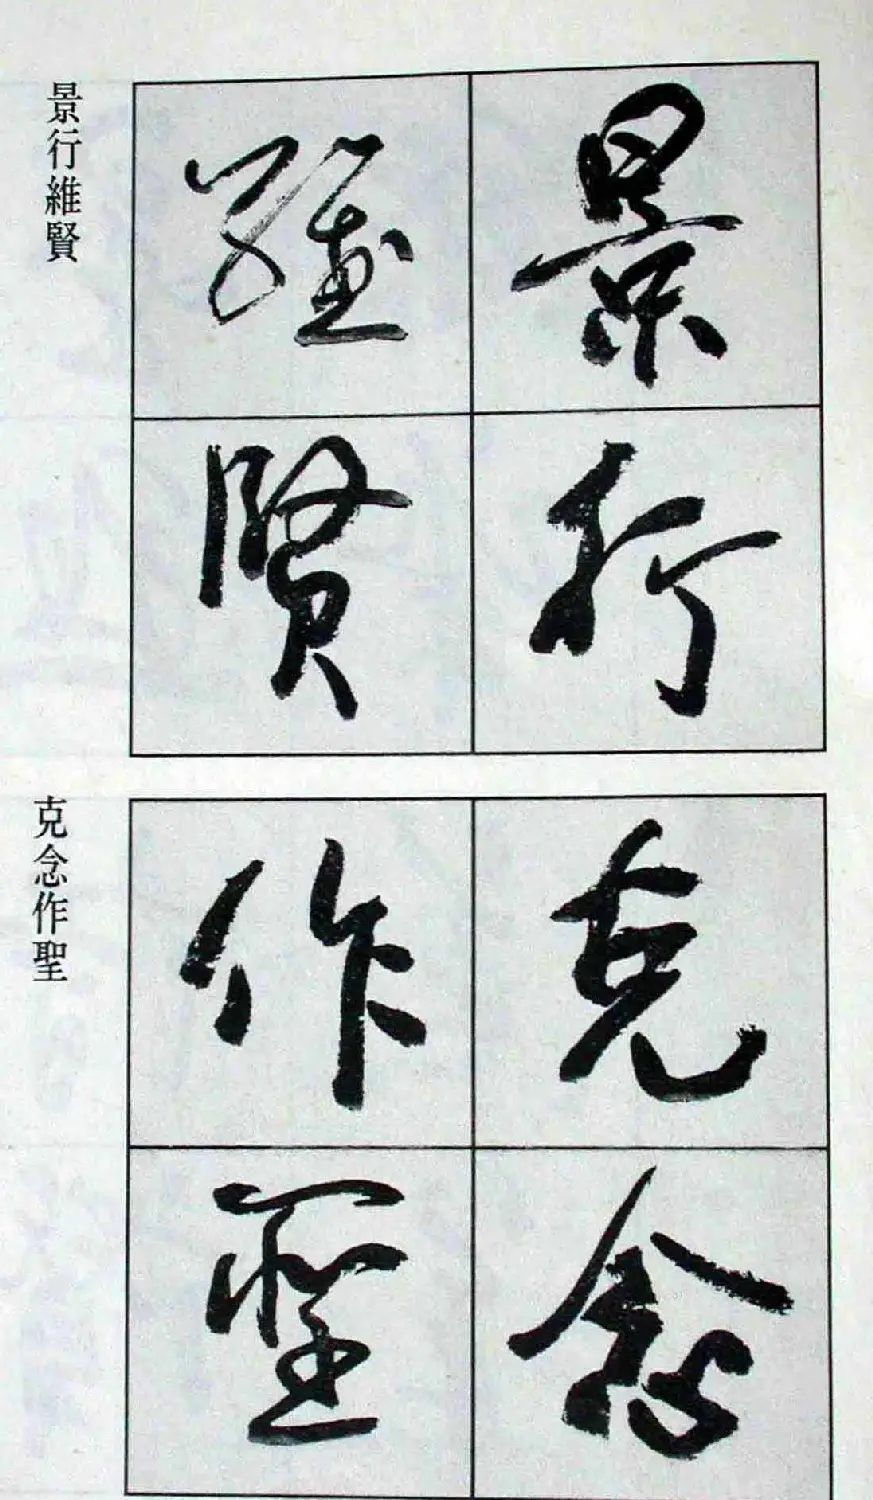 景行
維賢
景行維賢
克念
作聖
克念作聖